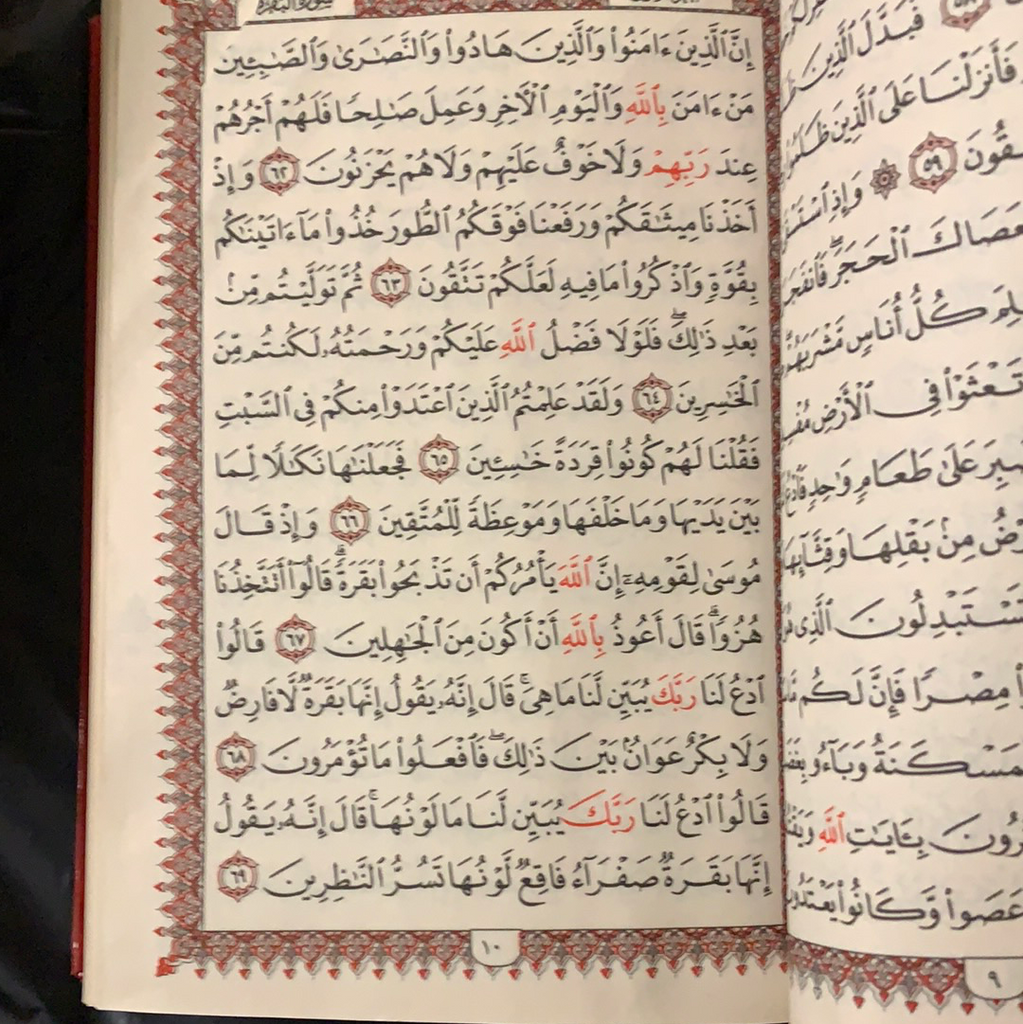 سورة البقرة
إِنَّ ٱلَّذِينَ ءَامَنُوا۟ وَٱلَّذِينَ هَادُوا۟ وَٱلنَّصَٰرَىٰ وَٱلصَّٰبِـِٔينَ
مَنْ ءَامَنَ بِٱللَّهِ وَٱلْيَوْمِ ٱلْأَخِرِ وَعَمِلَ صَٰلِحًا فَلَهُمْ أَجْرُهُمْ
عِندَ رَبِّهِمْ وَلَا خَوْفٌ عَلَيْهِمْ وَلَا هُمْ يَحْزَنُونَ ٦٢ وَإِذْ
أَخَذْنَا مِيثَٰقَكُمْ وَرَفَعْنَا فَوْقَكُمُ ٱلطُّورَ خُذُوا۟ مَآ ءَاتَيْنَٰكُم
بِقُوَّةٍ وَٱذْكُرُوا۟ مَا فِيهِ لَعَلَّكُمْ تَتَّقُونَ ٦٣ ثُمَّ تَوَلَّيْتُم مِّنۢ
بَعْدِ ذَٰلِكَ ۖ فَلَوْلَا فَضْلُ ٱللَّهِ عَلَيْكُمْ وَرَحْمَتُهُۥ لَكُنتُم مِّنَ
ٱلْخَٰسِرِينَ ٦٤ وَلَقَدْ عَلِمْتُمُ ٱلَّذِينَ ٱعْتَدَوْا۟ مِنكُمْ فِى ٱلسَّبْتِ
فَقُلْنَا لَهُمْ كُونُوا۟ قِرَدَةً خَٰسِـِٔينَ ٦٥ فَجَعَلْنَٰهَا نَكَٰلًا لِّمَا
بَيْنَ يَدَيْهَا وَمَا خَلْفَهَا وَمَوْعِظَةً لِّلْمُتَّقِينَ ٦٦ وَإِذْ قَالَ
مُوسَىٰ لِقَوْمِهِۦٓ إِنَّ ٱللَّهَ يَأْمُرُكُمْ أَن تَذْبَحُوا۟ بَقَرَةً ۖ قَالُوٓا۟ أَتَتَّخِذُنَا
هُزُوًا ۖ قَالَ أَعُوذُ بِٱللَّهِ أَنْ أَكُونَ مِنَ ٱلْجَٰهِلِينَ ٦٧ قَالُوا۟
ٱدْعُ لَنَا رَبَّكَ يُبَيِّن لَّنَا مَا هِىَ ۚ قَالَ إِنَّهُۥ يَقُولُ إِنَّهَا بَقَرَةٌ لَّا فَارِضٌ
وَلَا بِكْرٌ عَوَانٌۢ بَيْنَ ذَٰلِكَ ۖ فَٱفْعَلُوا۟ مَا تُؤْمَرُونَ ٦٨
قَالُوا۟ ٱدْعُ لَنَا رَبَّكَ يُبَيِّن لَّنَا مَا لَوْنُهَا ۚ قَالَ إِنَّهُۥ يَقُولُ
إِنَّهَا بَقَرَةٌ صَفْرَآءُ فَاقِعٌ لَّوْنُهَا تَسُرُّ ٱلنَّٰظِرِينَ ٦٩
١٠
٥٨
فَبَدَّلَ ٱلَّذِينَ
فَأَنزَلْنَا عَلَى ٱلَّذِينَ ظَلَمُوا۟
٥٩ وَإِذِ
ٱلْحَجَرَ ۖ
كُلُّ أُنَاسٍ مَّشْرَبَهُمْ
تَعْثَوْا۟ فِى ٱلْأَرْضِ
عَلَىٰ طَعَامٍ وَٰحِدٍ
مِنۢ بَقْلِهَا وَقِثَّآئِهَا
ٱلَّذِى
مِصْرًا فَإِنَّ لَكُم
وَبَآءُو
بِـَٔايَٰتِ ٱللَّهِ
عَصَوا۟ وَّكَانُوا۟ يَعْتَدُونَ
٩